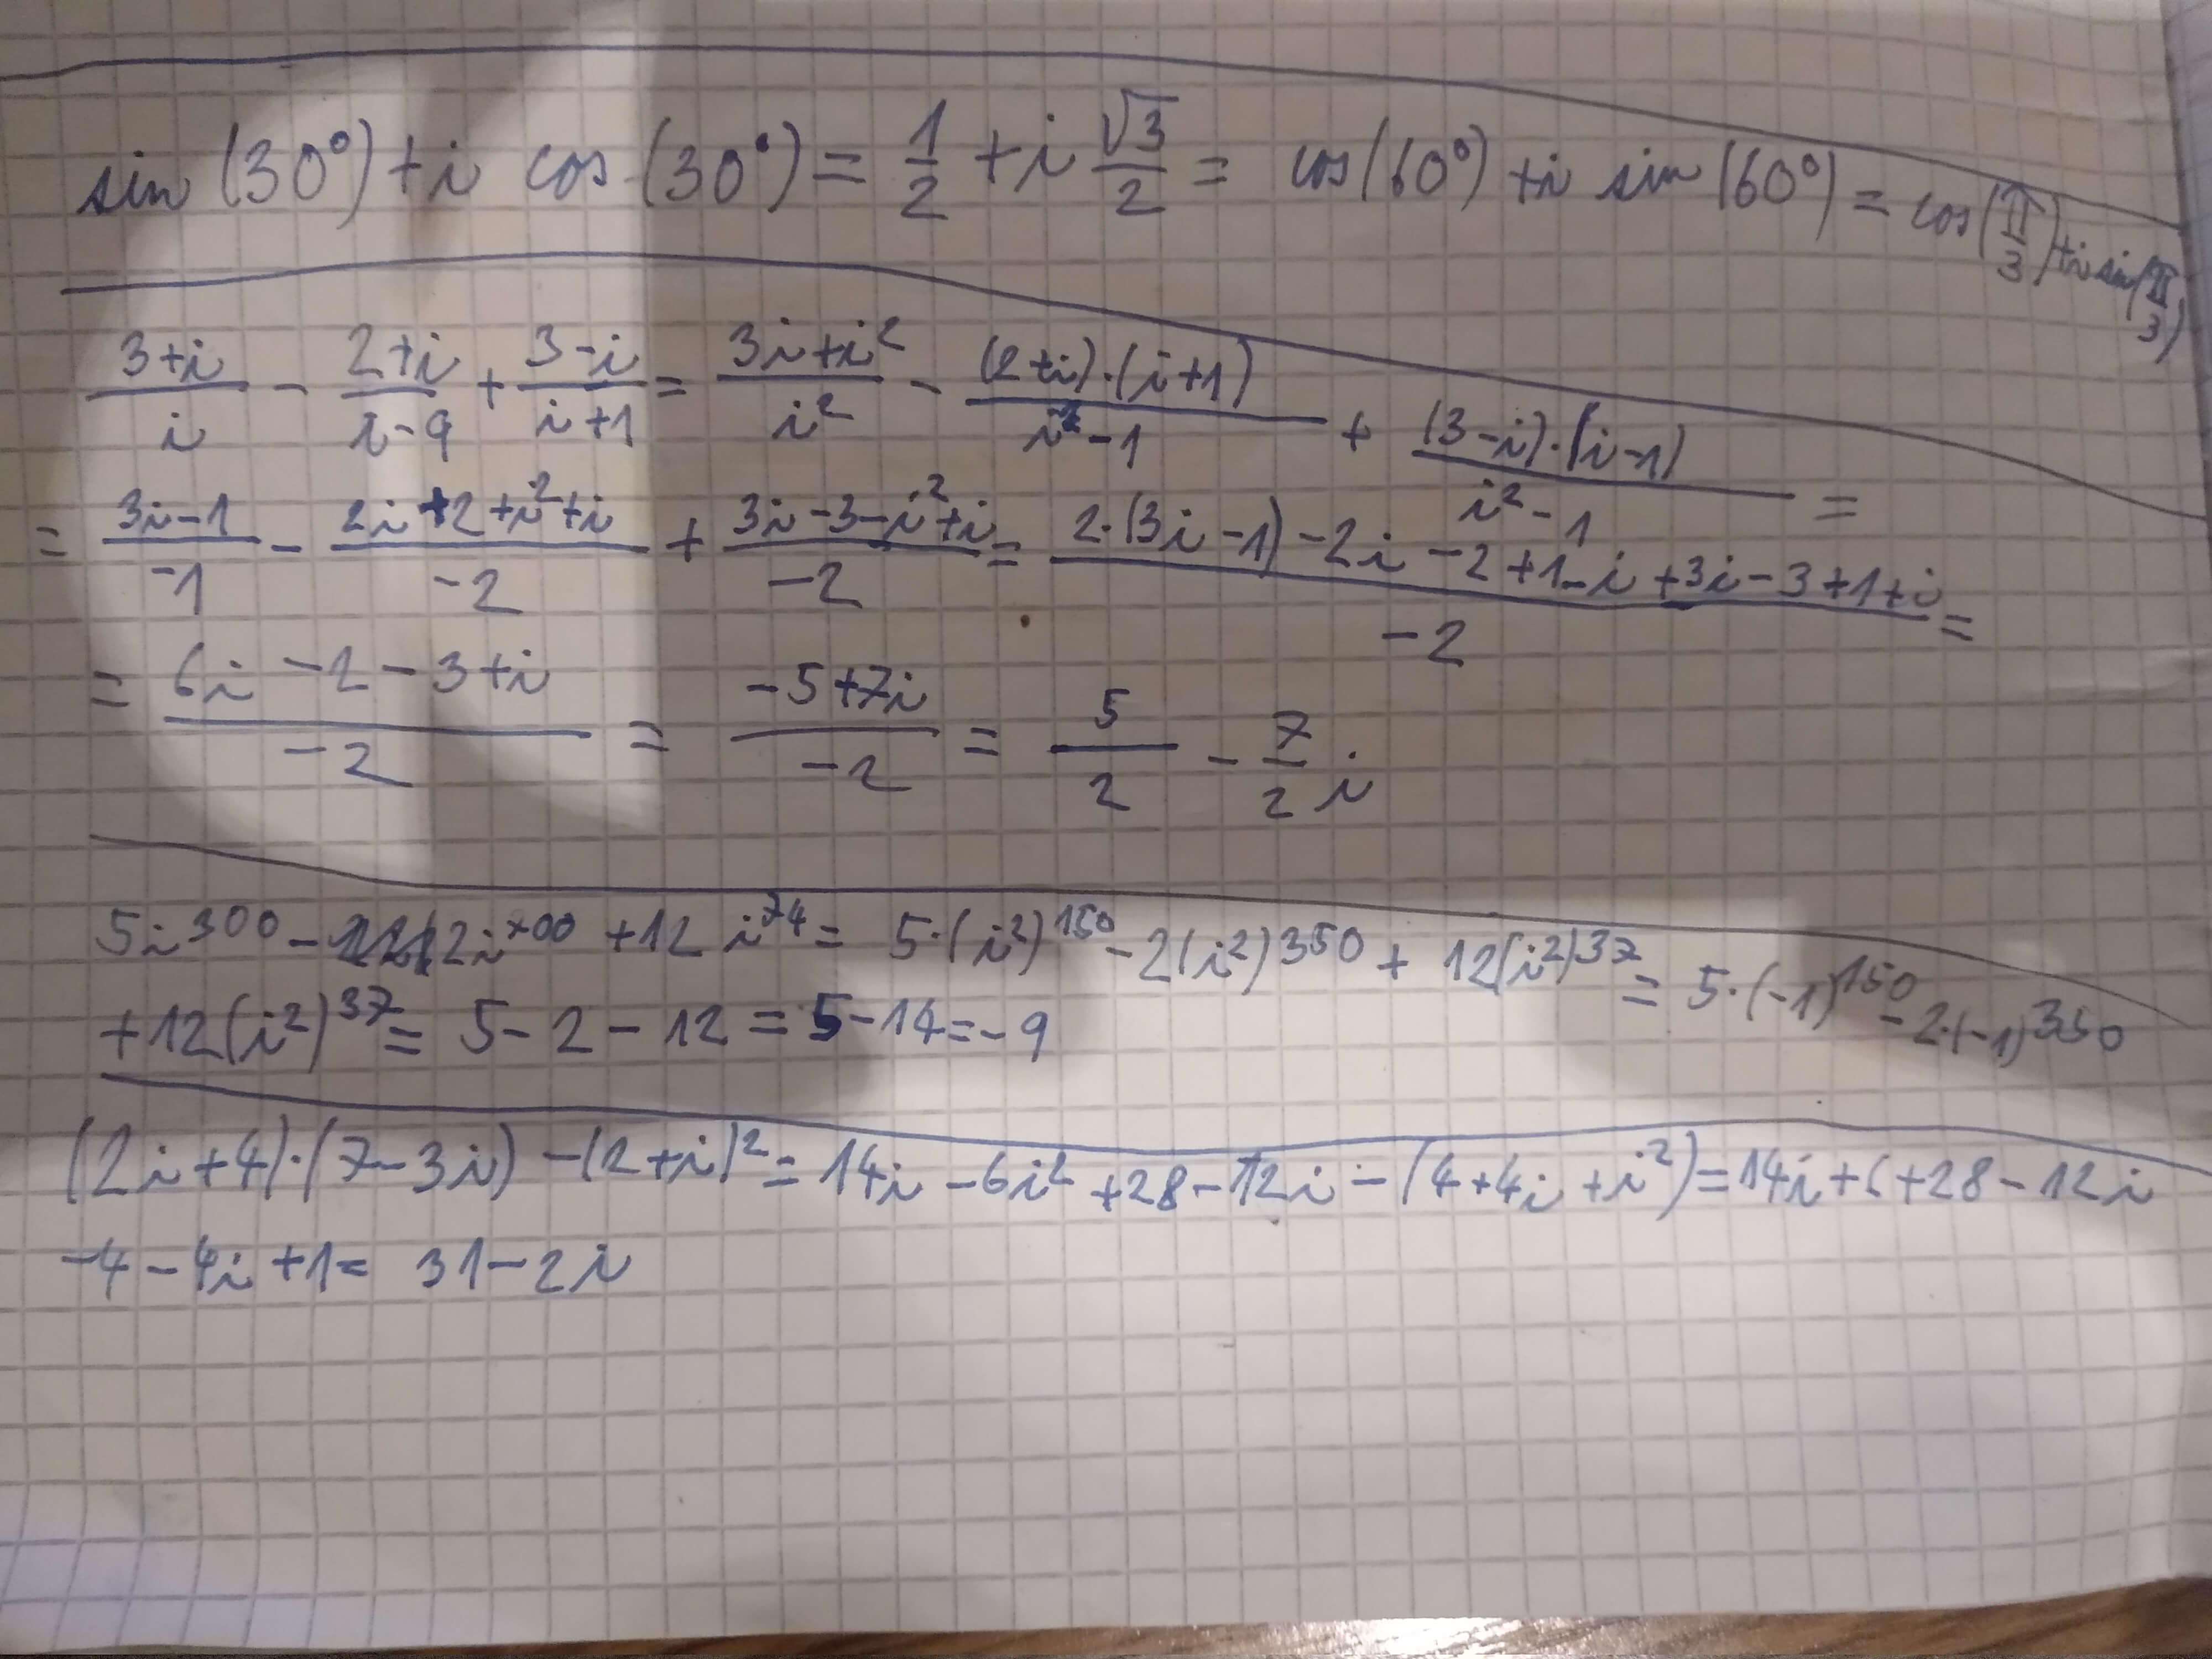 sin (30°) + i cos (30°) = 1/2 + i √3/2 = cos(60°) + i sin (60°) = cos(π/3) + i sin(π/3)
(3+i)/i - (2+i)/(i-9) + (3-i)/(i+1) = (3i+i²)/i² - ((2+i)·(i+1))/(i²-1) + ((3-i)·(i-1))/(i²-1) =
= (3i-1)/(-1) - (2i+2+i²+i)/(-2) + (3i-3-i²+i)/(-2) = (2·(3i-1)-2i-2+1-i+3i-3+1+i)/(-2) =
= (6i-2-3+i)/(-2) = (-5+7i)/(-2) = 5/2 - 7/2 i
5i³⁰⁰ - 2i⁷⁰⁰ + 12 i⁷⁴ = 5·(i²)¹⁵⁰ - 2(i²)³⁵⁰ + 12(i²)³⁷ = 5·(-1)¹⁵⁰ - 2·(-1)³⁵⁰
+12(i²)³⁷ = 5-2-12 = 5-14=-9
(2i+4)·(7-3i) -(2+i)² = 14i -6i² +28-12i -(4+4i+i²) = 14i+6+28-12i
-4-4i+1= 31-2i